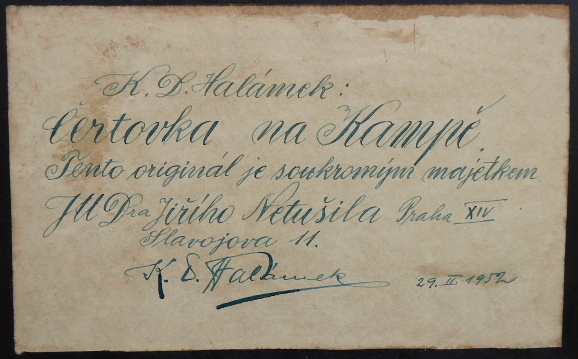 K. D. Halámek:
Čertovka na Kampě.
Tento originál je soukromým majetkem
JUDra Jiřího Netušila Praha XIV
Slavojova 11.
K. D. Halámek 29. II. 1952